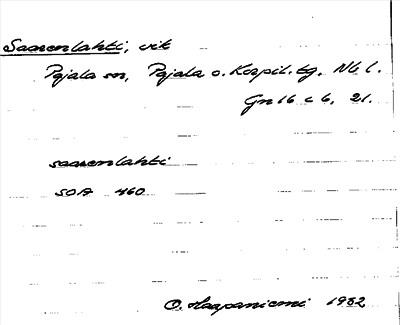 Saarenlahti, vik
Pajala sn, Pajala o. Korpil. tg, Nb l.
Gn 16 c 6, 21.
saarenlahti
SOA 460
O. Haapaniemi 1932